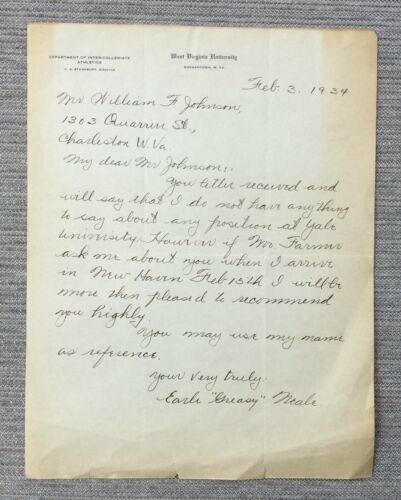 DEPARTMENT OF INTER-COLLEGIATE
ATHLETICS
H. A. STANSBURY, DIRECTOR
West Virginia University
MORGANTOWN, W. VA.
Feb. 3. 1934
Mr William F Johnson,
1303 Quarrier St.,
Charleston W. Va.
My dear Mr Johnson:.
You letter received and
will say that I do not have anything
to say about any position at Yale
University. However if Mr. Farmer
ask me about you when I arrive
in New Haven Feb 15th I will be
more then pleased to recommend
you highly.
You may use my name
as reference.
Your very truly.
Earle "Greasy" Neale